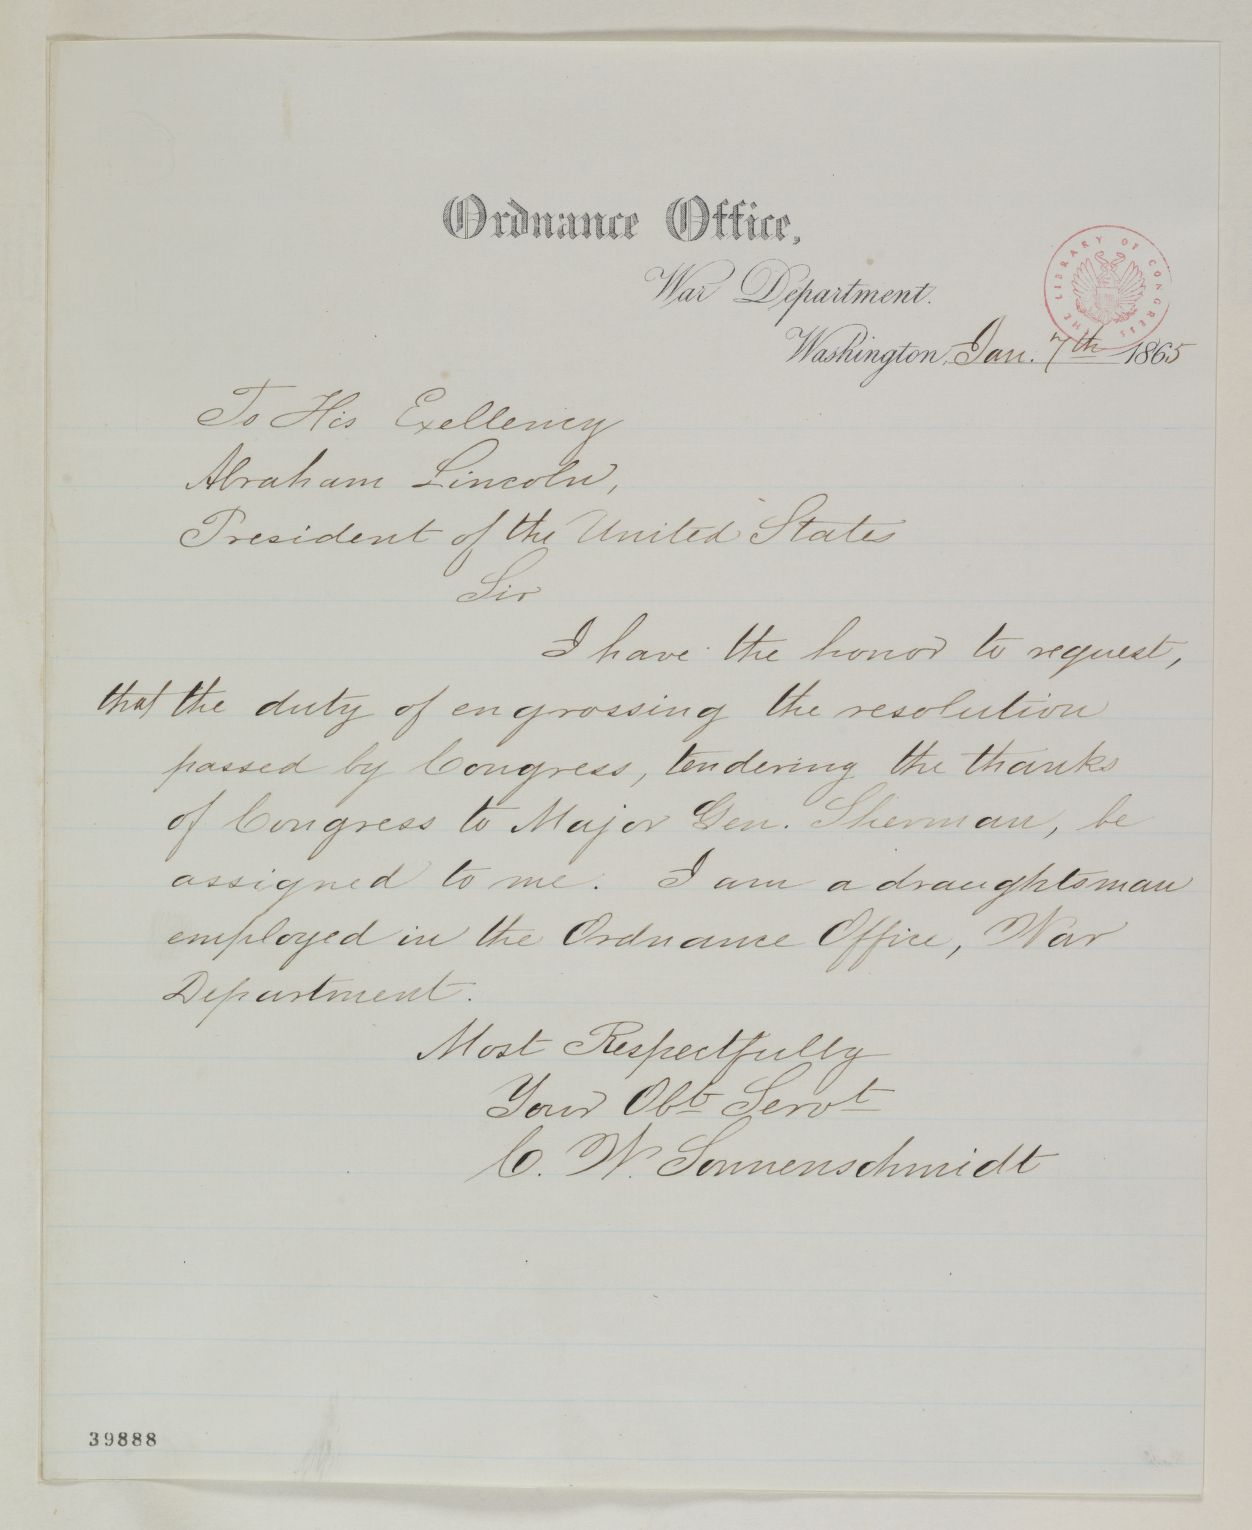 Ordnance Office,
War Department.
THE LIBRARY OF CONGRESS
Washington, Jan. 7th 1865
To His Exellency
Abraham Lincoln,
President of the United States
Sir
I have the honor to request,
that the duty of engrossing the resolution
passed by Congress, tendering the thanks
of Congress to Major Gen. Sherman, be
assigned to me. I am a draughtsman
employed in the Ordnance Office, War
Department.
Most Respectfully
Your Obt Servt
C. W. Sonnenschmidt
39888